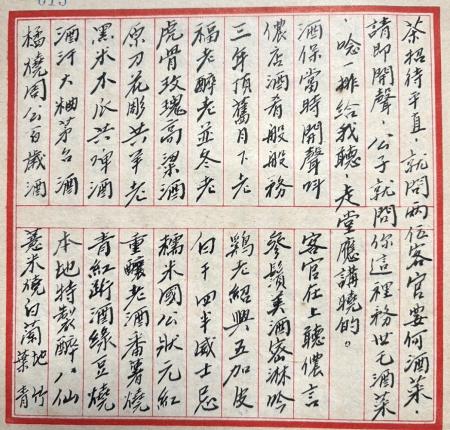 茶招待平直 就問兩位客官要何酒菜.
請即開聲 公子就問 你這裡務世乇酒菜
.唸一排給我聽.走堂應講曉的。
酒保當時開聲叫 客官在上聽儂言
儂店酒肴般般務 參鬚美酒容淋吟
三年頂舊月下老 鷄老紹興五加皮
福老醉老並冬老 白干四半威士忌
虎骨玫瑰高粱酒 糯米國公狀元紅
原刀花彫共平老 重釀老酒番薯燒
黑米木瓜共啤酒 青紅 酒綠豆燒
酒汗大柚茅台酒 本地特製醉八仙
橘燒周公百歲酒 薏米燒白蘭地竹葉青